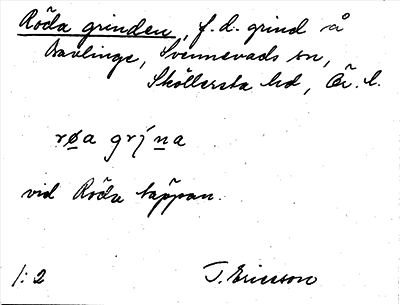 Röda grinden, f.d. grind å
Bavlinge, Svennevads sn,
Sköllersta hd, Ör. l.
røa grįna
vid Röda täppan.
1:2 T. Ericsson